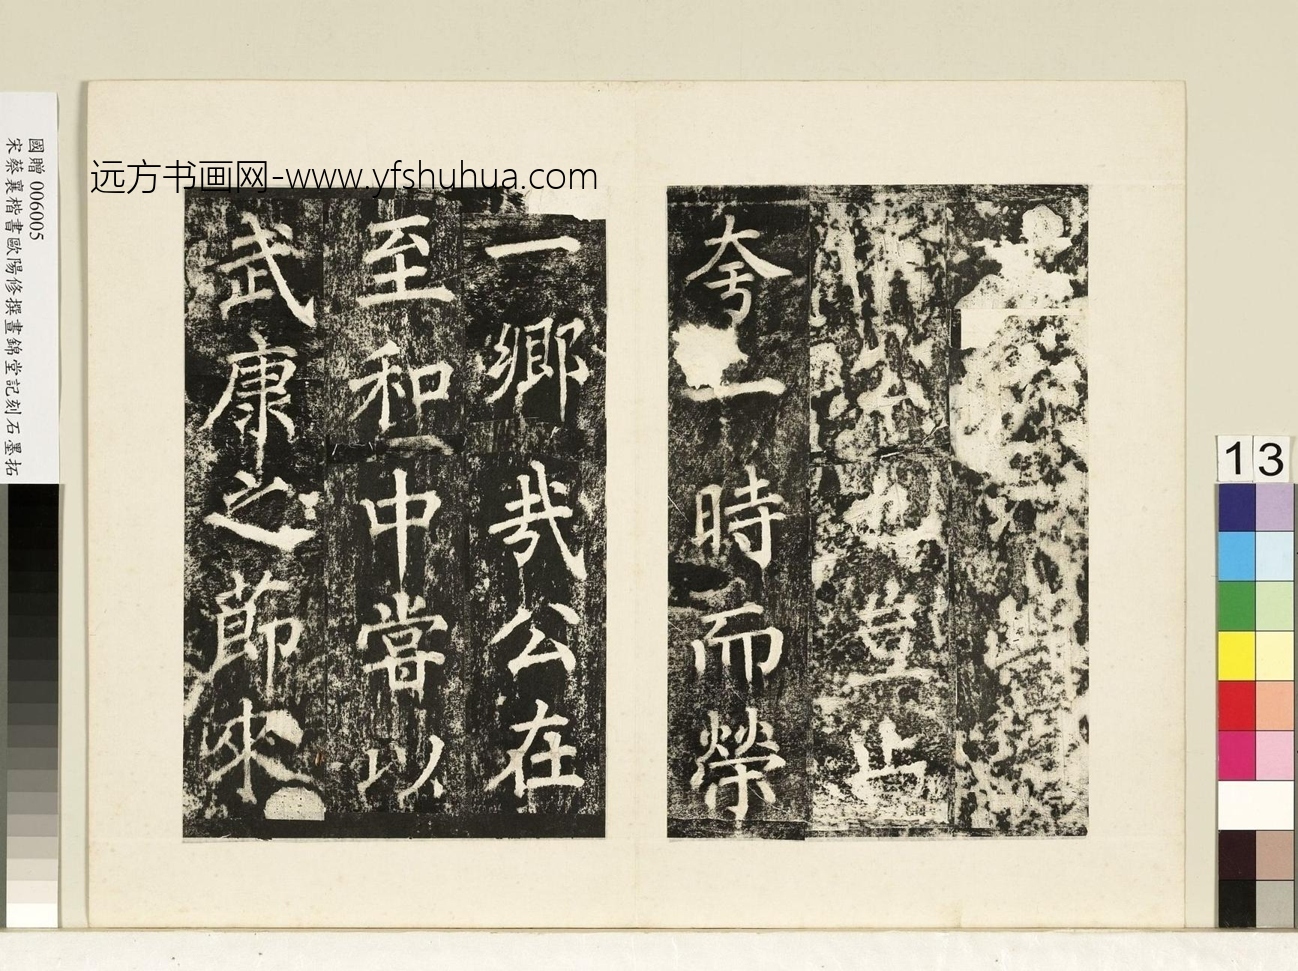 远方书画网-www.yfshuhua.com
公也豈止
夸一時而榮
一鄉哉公在
至和中嘗以
武康之節來
國贈 006005
宋蔡襄楷書歐陽修撰晝錦堂記刻石墨拓
13